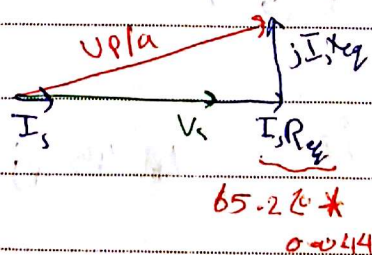 Vp/a
jIsXeq
Is Vs IsReq
65.2 *
0.044